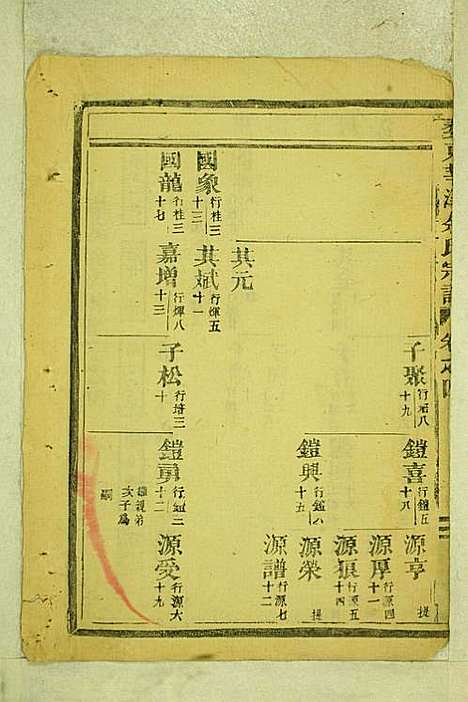 氏宗譜
子張
行培八
十九
鎧喜
行鎧五
十八
源亨
提
源厚
行源四
十一
源狼
行源五
十四
鎧興
行鎧八
十五
源榮
提
源譜
行源七
十二
其元
國象
行桂三
十三
其斌
行煇五
十一
國龍
行桂三
十七
嘉增
行煇八
十三
子松
行培三
十
鎧勇
行鎧三
十二
源愛
行源六
十九
次子爲
嗣